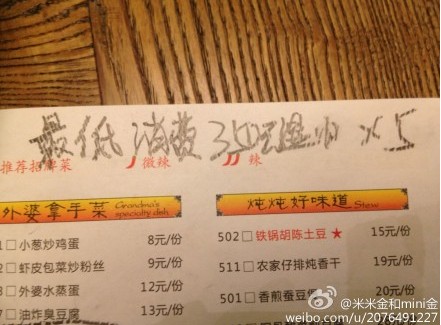 最低消费350
推荐招牌菜 微辣 辣
外婆拿手菜 Grandma's specialty dish
炖炖好味道 Stew
1□小葱炒鸡蛋 8元/份
2□虾皮包菜炒粉丝 9元/份
3□外婆水蒸蛋 12元/份
7□油炸臭豆腐 13元/份
502□铁锅胡陈土豆★ 15元/份
511□农家仔排炖香干 19元/份
501□香煎蚕豆 20元/份
@米米金和mini金
weibo.com/u/2076491227